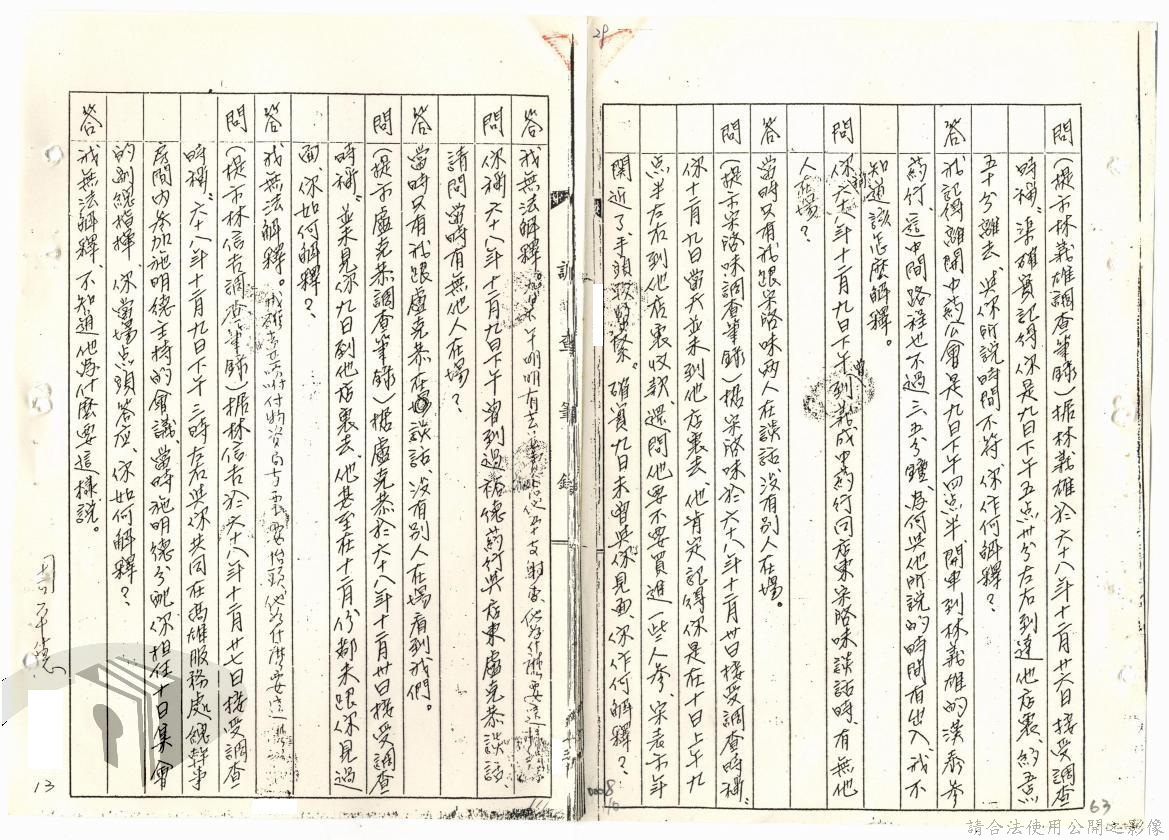 問(提示林義雄調查筆錄)據林義雄於六十八年十二月廿六日接受調查
時稱「渠確實記得你是九日下午五点卅分左右到達他店裏,約五点
五十分離去」與你所說時間不符你作何解釋?
答我記得離開中葯公會是九日下午四点半開車到林義雄的漢泰參
葯行,這中間路程也不過三、五分鐘,為何與他所說的時間有出入,我不
知道該怎麼解釋。
問你六十八年十二月九日下午到義成中葯行同店東宋洛味談話時,有無他
人在場?
答當時只有我跟宋洛味兩人在談話沒有別人在場。
問(提示宋洛味調查筆錄)據宋洛味於六十八年十二月廿日接受調查時稱:
你十二月九日當天並未到他店裏去,他肯定記得你是在十日上午九
点半左右到他店裏收款還問他要不要買進一些人參,宋表示年
関近了,手頭較緊。確實九日未曾與你見面,你作何解釋?
答我無法解釋。
問你稱六十八年十二月九日下午曾到過裕德葯行與店東盧克恭談話,
請問當時有無他人在場?
答當時只有我跟盧克恭在場談話,沒有別人在場看到我們。
問(提示盧克恭調查筆錄)據盧克恭於六十八年十二月卅日接受調查
時稱「並未見你九日到他店裏去,他甚至在十二月份都未跟你見過
面,你如何解釋?
答我無法解釋。
問(提示林信吉調查筆錄)據林信吉於六十八年十二月廿七日接受調查
時稱「六十八年十二月九日下午三時左右與你共同在高雄服務處總幹事
房間內參加施明德主持的會議,當時施明德分配你担任十日集會
的副總指揮,你當場点頭答應,你如何解釋?
答我無法解釋,不知道他為什麼要這樣說。
周平德
調查筆錄
13
63
29
請合法使用公開之影像